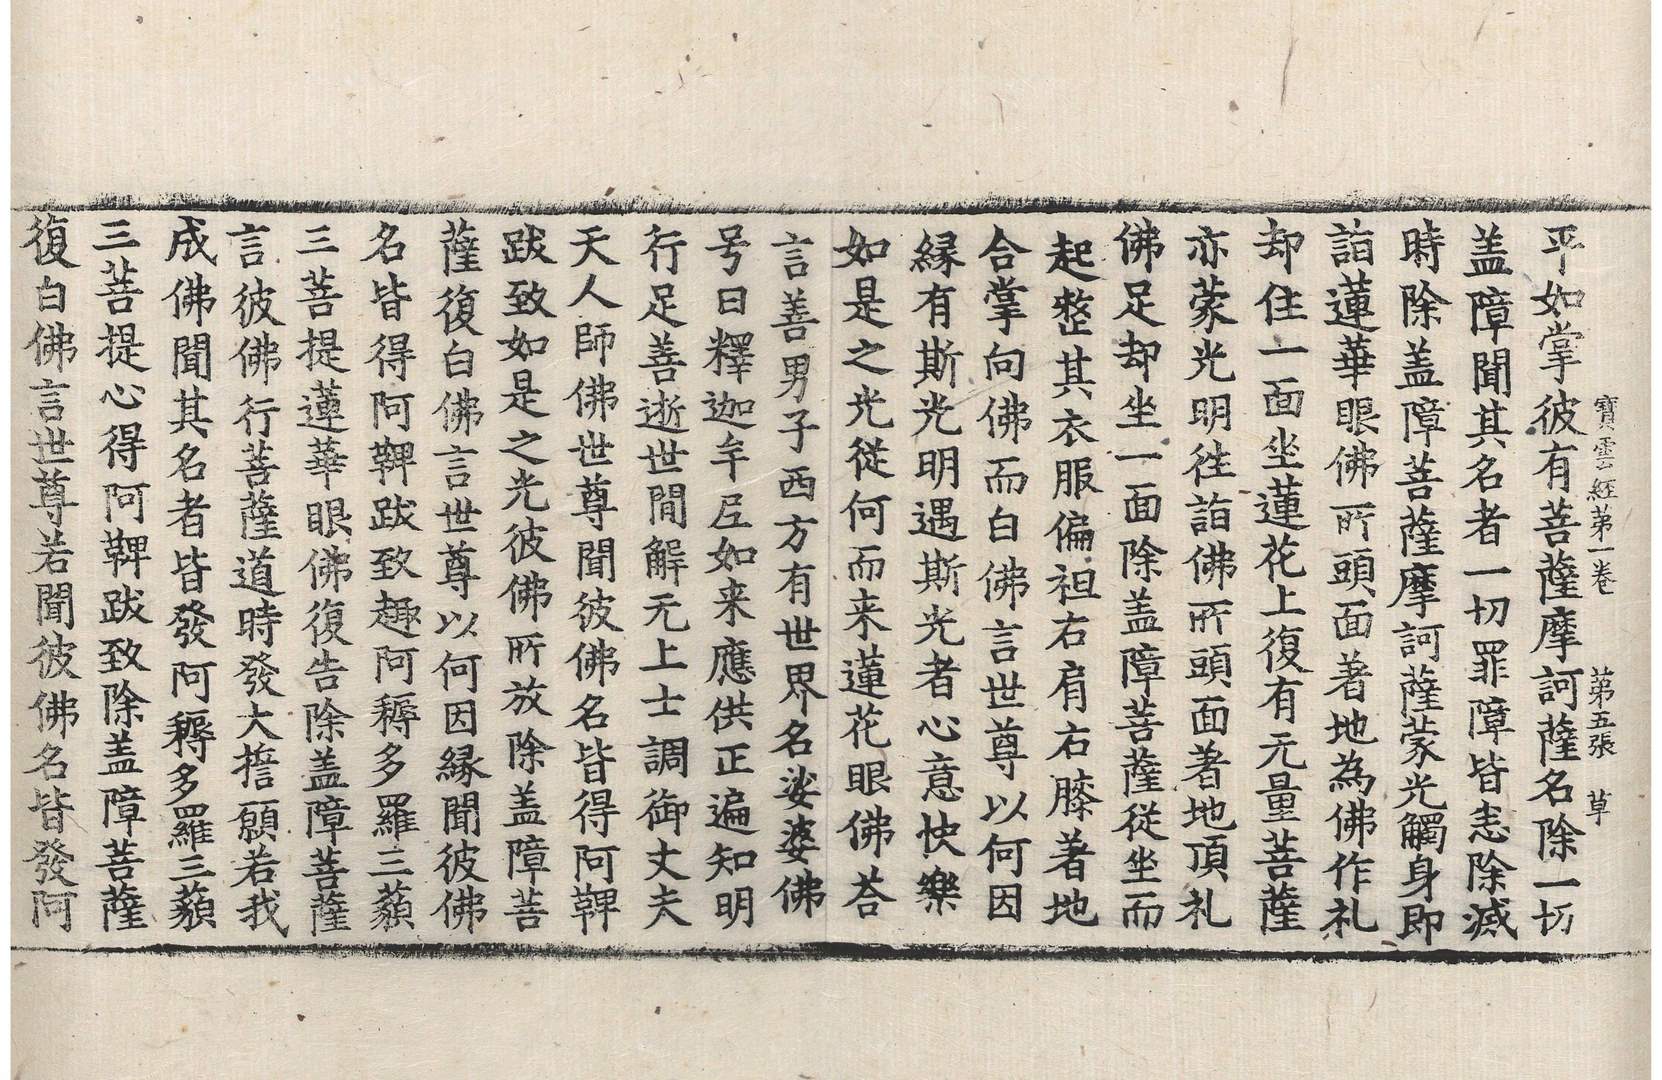 寶雲經第一卷　第五張　草
平如掌彼有菩薩摩訶薩名除一切
盖障聞其名者一切罪障皆恚除滅
時除盖障菩薩摩訶薩蒙光觸身即
詣蓮華眼佛所頭面著地為佛作礼
却住一面坐蓮花上復有无量菩薩
亦蒙光明徃詣佛所頭面著地頂礼
佛足却坐一面除盖障菩薩従坐而
起整其衣服偏袒右肩右膝著地
合掌向佛而白佛言世尊以何因
縁有斯光明遇斯光者心意快樂
如是之光従何而来蓮花眼佛荅
言善男子西方有世界名娑婆佛
号曰釋迦牟𡰱如来應供正遍知明
行足善逝世間解无上士調御丈夫
天人師佛世尊聞彼佛名皆得阿鞞
跋致如是之光彼佛所放除盖障菩
薩復白佛言世尊以何因縁聞彼佛
名皆得阿鞞跋致趣阿耨多羅三藐
三菩提蓮華眼佛復告除盖障菩薩
言彼佛行菩薩道時發大擔願若我
成佛聞其名者皆發阿耨多羅三藐
三菩提心得阿鞞跋致除盖障菩薩
復白佛言世尊若聞彼佛名皆發阿